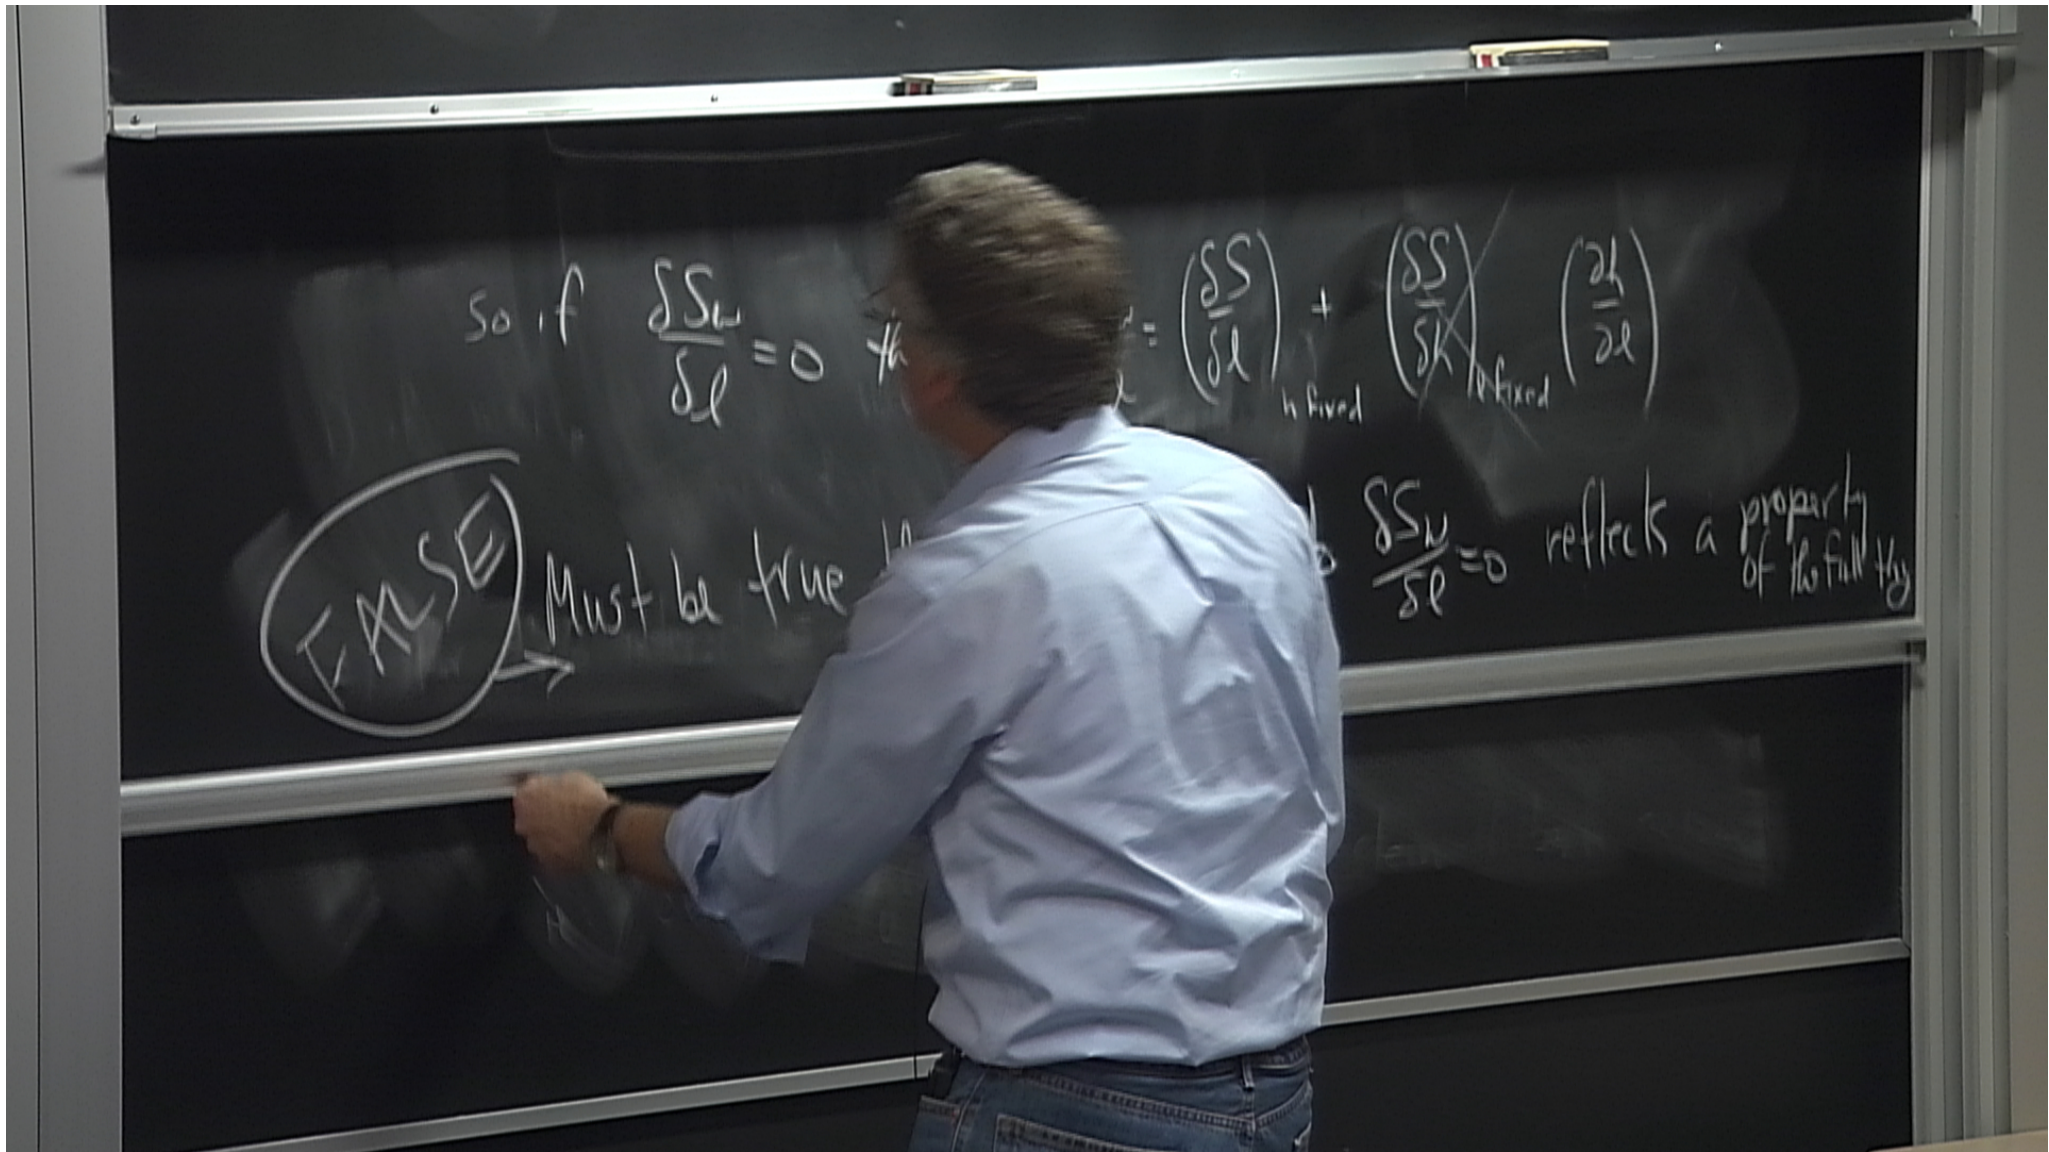 So if δS_W/δl = 0 = (δS/δl)_{h fixed} + (δS/δh)_{l fixed} (∂h/∂l)
FALSE
→ Must be true δS_W/δl = 0 reflects a property
of the full thy